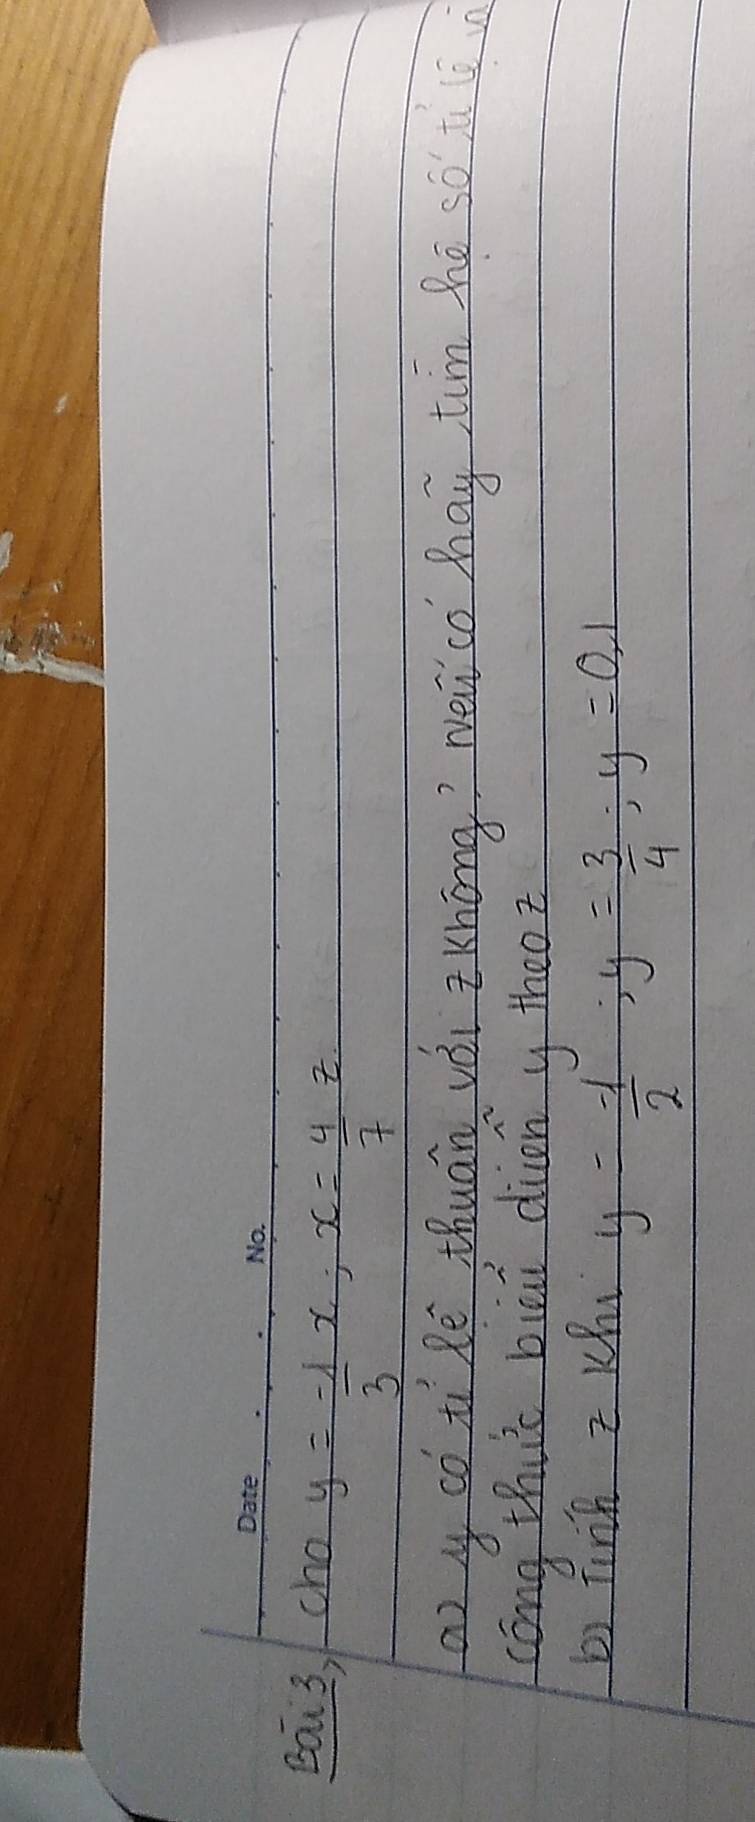 Date No.
Bài 3, cho y = -1/3 x ; x = 4/7 z.
a) y có tỉ lệ thuận với z không? nếu có hãy tìm hệ số tỉ lệ và
công thức biểu diễn y theo z
b) Tính z khi y = -1/2 ; y = 3/4 ; y = 0,1